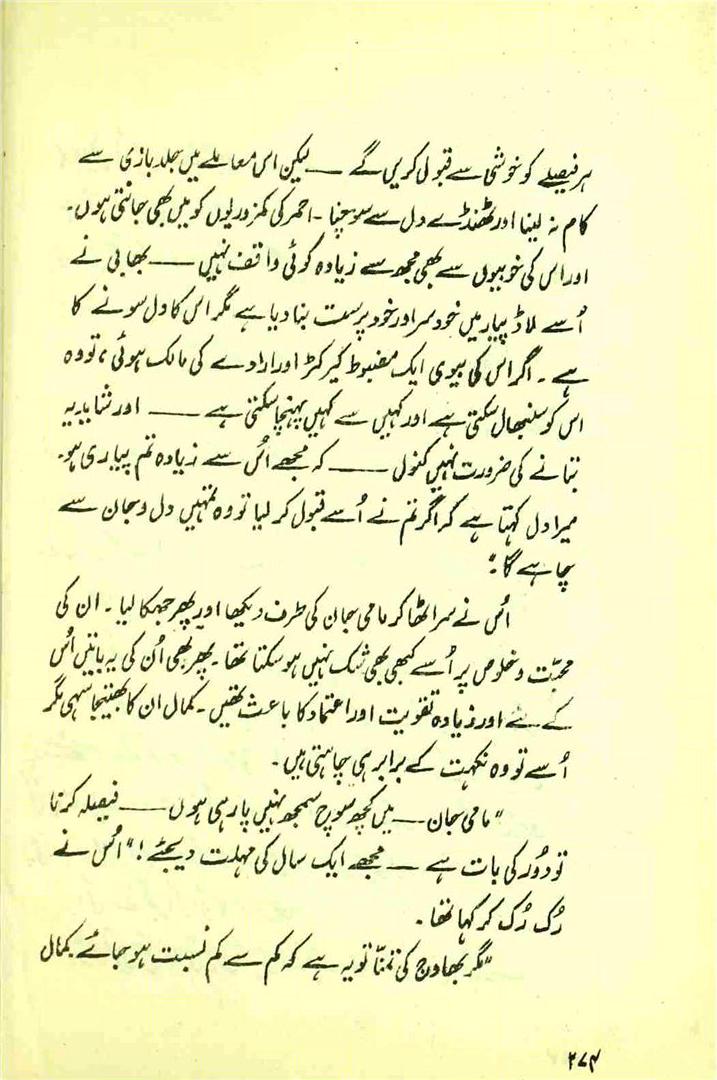 ہر فیصلے کو خوشی سے قبول کریں گے ــــ لیکن اس معاملے میں جلد بازی سے
کام نہ لینا اور ٹھنڈے دل سے سوچنا ۔ احمر کی کمزوریوں کو میں بھی جانتی ہوں۔
اور اس کی خوبیوں سے بھی مجھ سے زیادہ کوئی واقف نہیں ــــ بھابی نے
اُسے لاڈ پیار میں خود سر اور خود پرست بنا دیا ہے مگر اس کا دل سونے کا
ہے ۔ اگر اس کی بیوی ایک مضبوط کیرکٹر اور ارادے کی مالک ہوئی، تو وہ
اس کو سنبھال سکتی ہے اور کہیں سے کہیں پہنچا سکتی ہے ــــ اور شاید یہ
بتانے کی ضرورت نہیں کنول ــــ کہ مجھے اُس سے زیادہ تم پیاری ہو۔
میرا دل کہتا ہے کہ اگر تم نے اُسے قبول کر لیا تو وہ تمہیں دل و جان سے
چاہے گا ۔"
اُس نے سر اٹھا کر مامی جان کی طرف دیکھا اور پھر جھکا لیا ۔ ان کی
محبّت و خلوص پر اُسے کبھی بھی شک نہیں ہو سکتا تھا ۔ پھر بھی اُن کی یہ باتیں اُس
کے لئے اور زیادہ تقویت اور اعتماد کا باعث تھیں ۔ کمال ان کا بھتیجا سہی مگر
اُسے تو وہ نکہت کے برابر ہی چاہتی ہیں ۔
"مامی جان ــــ میں کچھ سوچ سمجھ نہیں پا رہی ہوں ــــ فیصلہ کرنا
تو دُور کی بات ہے ــــ مجھے ایک سال کی مہلت دیجئے !" اُس نے
رُک رُک کر کہا تھا ۔
"مگر بھاوج کی تمنّا تو یہ ہے کہ کم سے کم نسبت ہو جائے کمال
۲۷۴